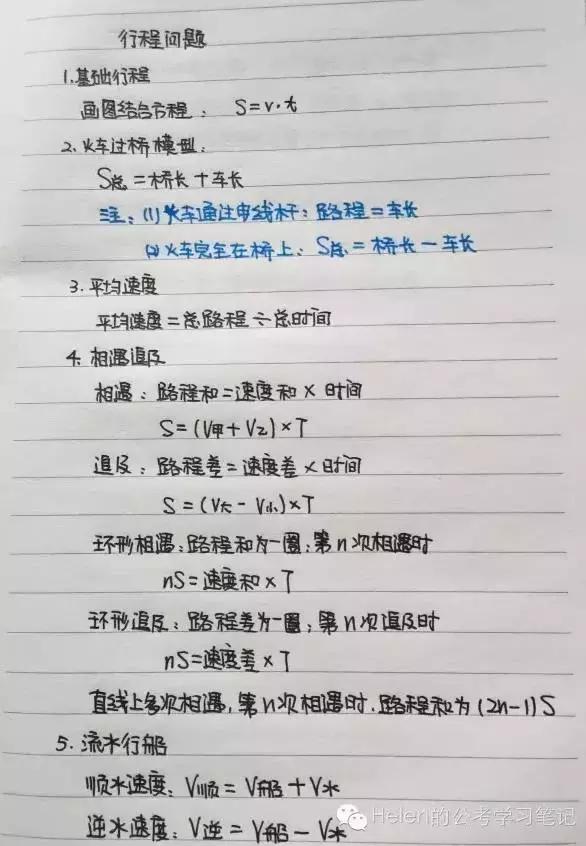 行程问题
1.基础行程
画图结合方程: S=v·t
2.火车过桥模型:
S总=桥长+车长
注:(1)火车通过电线杆:路程=车长
(2)火车完全在桥上:S总=桥长-车长
3.平均速度
平均速度=总路程÷总时间
4.相遇追及
相遇:路程和=速度和×时间
S=(V甲+V乙)×T
追及:路程差=速度差×时间
S=(V大-V小)×T
环形相遇:路程和为一圈;第n次相遇时
nS=速度和×T
环形追及:路程差为一圈;第n次追及时
nS=速度差×T
直线上多次相遇,第n次相遇时.路程和为(2n-1)S
5.流水行船
顺水速度:V顺=V船+V水
逆水速度:V逆=V船-V水
Helen的公考学习笔记